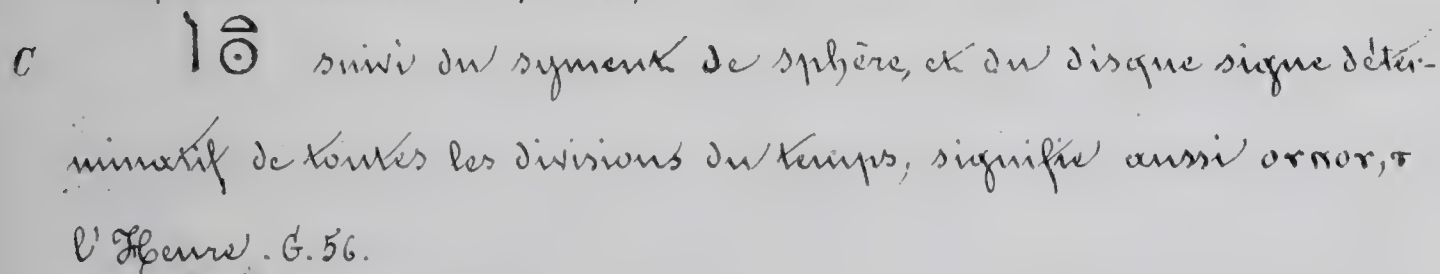 C 𓆳𓏏𓇳 suivi du syment de sphère, et du disque signe déter-
minatif de toutes les divisions du temps, signifie aussi ⲟⲩⲛⲟⲩ, ⲧ
l'Heure. G. 56.